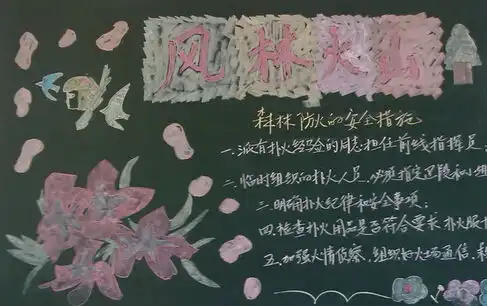 风林火山
森林防火的安全措施
一.派有扑火经验的同志担任前线指挥员
二.临时组织的扑火人员,必须指定
三.明确扑火纪律和安全事项;
四.检查扑火用品是否符合要求,扑火服
五.加强火情侦察,组织好火场通信,